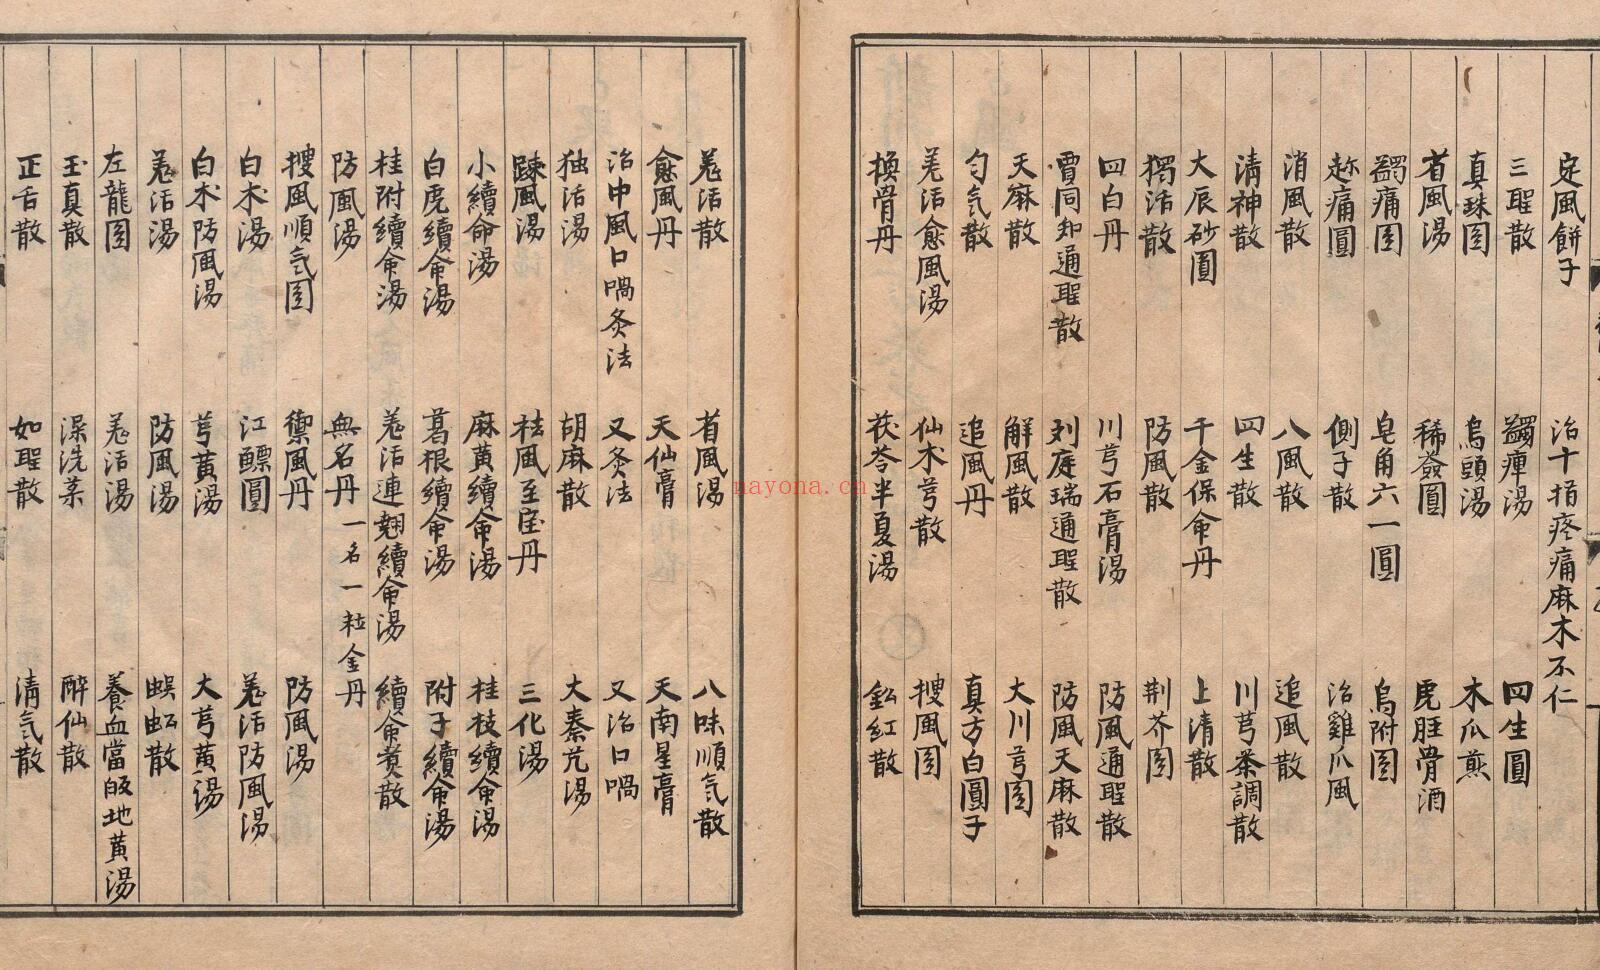 定風餅子 治十指疼痛麻木不仁
三聖散 蠲痺湯 四生圓
真珠圎 烏頭湯 木瓜煎
省風湯 稀薟圓 虎脛骨酒
蠲痛圎 皂角六一圓 烏附圎
趂痛圓 側子散 治雞爪風
消風散 八風散 追風散
清神散 四生散 川芎茶調散
大辰砂圓 千金保命丹 上清散
獨活散 防風散 荆芥圎
四白丹 川芎石膏湯 防風通聖散
賈同知通聖散 刘庭瑞通聖散 防風天麻散
天麻散 解風散 大川芎圎
匀氣散 追風丹 真方白圓子
羌活愈風湯 仙术芎散 搜風圎
換骨丹 茯苓半夏湯 鈆紅散
羌活散 省風湯 八味順氣散
愈風丹 天仙膏 天南星膏
治中風口喎灸法 又灸法 又治口喎
独活湯 胡麻散 大秦艽湯
踈風湯 祛風至宝丹 三化湯
小續命湯 麻黄續命湯 桂枝續命湯
白虎續命湯 葛根續命湯 附子續命湯
桂附續命湯 羌活連翹續命湯 續命煑散
防風湯 無名丹 一名一粒金丹
搜風順氣圎 禦風丹 防風湯
白术湯 江鰾圓 羌活防風湯
白术防風湯 芎黄湯 大芎黄湯
羌活湯 防風湯 蜈蚣散
左龍圎 羌活湯 養血當皈地黄湯
玉真散 澡洗藥 醉仙散
正舌散 如聖散 清氣散
nayona.cn